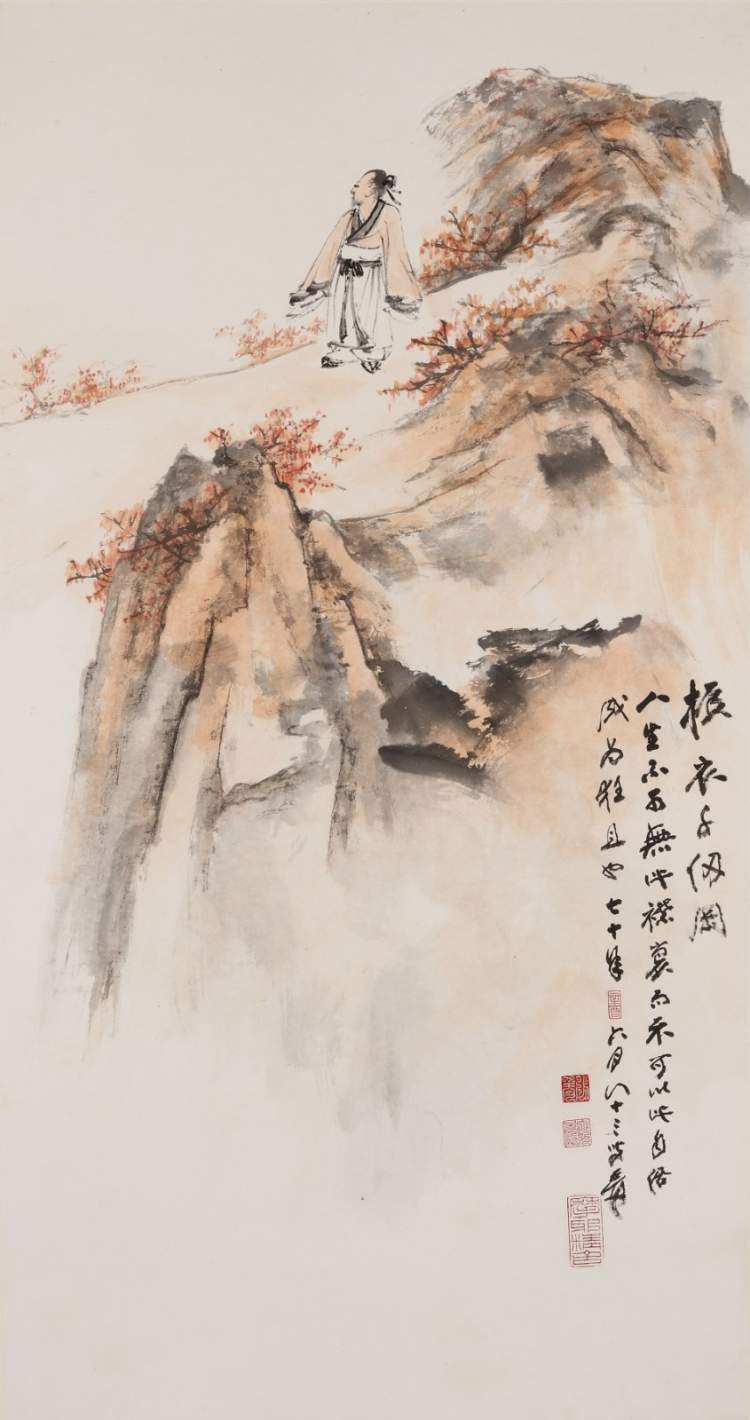 振衣千仞岡
人生不可無此襟褱而不可以此自
成為狂且也七十年六月八十三叟爰